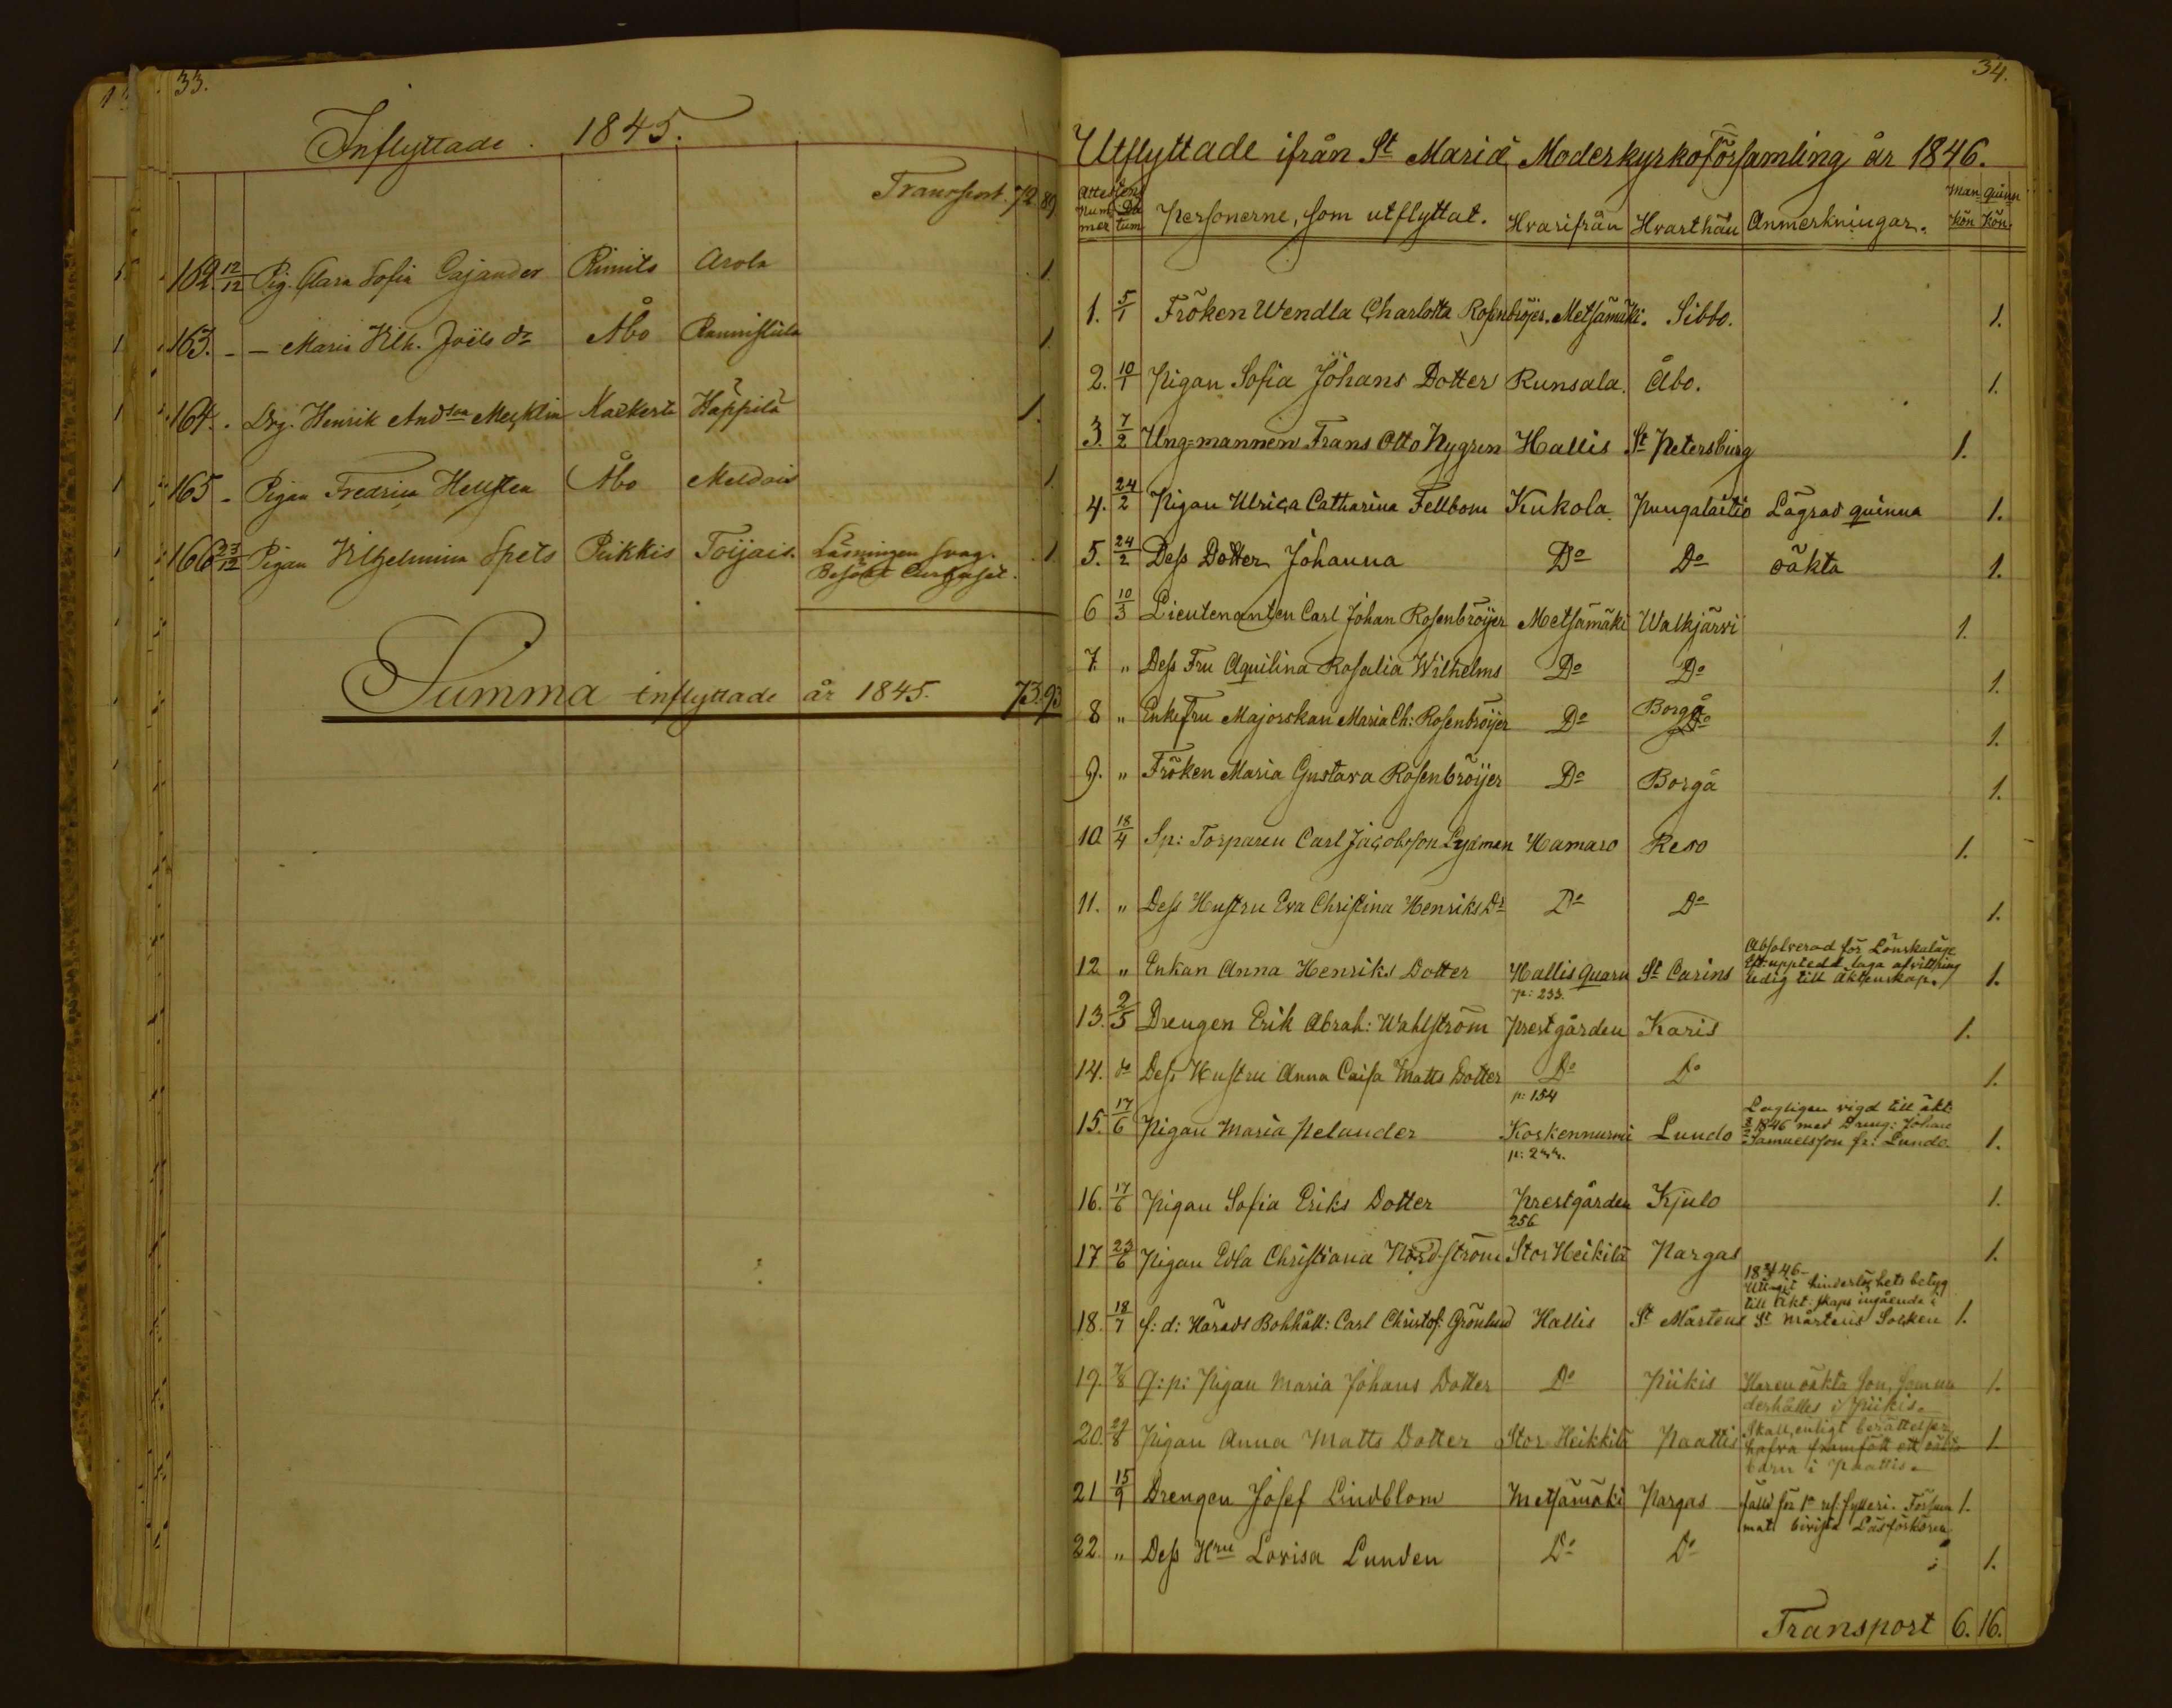 33.
Inflyttade . 1845.
Transport. 72 89
162. 12/12 Pig. Clara Sofia Cajander Rimito Arola 1
163. - - Maria Vilh. Joëls dr Åbo Rannistula 1
164. - Drg. Henrik Andson Mecklin Nackerla Happila 1.
165 - Pigan Fredrica Hellsten Åbo Meldois 1
166 23/12 Pigan Vilhelmina Spets Piikkis Toijais. Läsningen svag. 1
Besökt Curhuset.
Summa inflyttade år 1845. 73. 93
34.
Utflyttade ifrån St Mariæ Moderkyrkoförsamling år 1846.
Attestens
Num Da Personerne, som utflyttat. Hvarifrån Hvarthän Anmerkningar. Man qvinn
mer tum kön kön.
1. 5/1 Fröken Wendla Charlotta Rosenbröjer. Metsämäki. Sibbo. 1.
2. 10/1 Pigan Sofia Johans Dotter Runsala. Åbo. 1.
3. 7/2 Ung=mannen Frans Otto Nygren Hallis St Petersburg 1.
4. 24/2 Pigan Ulrica Catharina Fellbom Kukola Pungalaitio Lägrad quinna 1.
5. 24/2 Dess Dotter Johanna Do Do oäkta 1.
6 10/3 Lieutenanten Carl Johan Rosenbröijer Metsämäki Walkjärvi 1.
7. " Dess Fru Aquilina Rosalia Wilhelms Do Do 1.
8 " EnkeFru Majorskan Maria Ch: Rosenbröijer Do Borgå Do 1.
9. " Fröken Maria Gustava Rosenbröijer Do Borgå 1.
10 18/4 Sp: Torparen Carl Jacobsson Lydman Hamaro Reso 1.
11. " Dess Hustru Eva Christina Henriks Dr Do Do 1.
12 " Enkan Anna Henriks Dotter Hallis quarn St Carins Absolverad för Lönskaläge
Eft. uppledd laga afvittring
p: 233. ledig till äktenskap. 1.
13. 2/5 Drengen Erik Abrah: Wahlström Prestgården Karis 1.
14. do Dess Hustru Anna Caisa Matts Dotter Do Do 1.
p: 154
15. 17/6 Pigan Maria Pelander Koskennurmi Lundo Lagligen vigd till äkt.
1846 med Dräng: Johan
Samuelsson fr: Lundo. 1.
16. 17/6 Pigan Sofia Eriks Dotter Prestgården Kjulo 1.
256
17 23/6 Pigan Edla Christiana Nordström Stor Heikilä Pargas 1.
18. 18/7 f: d: Härads Bokhåll: Carl Christof: Grönlund Hallis St Mårtens Uttagit hinderslöshets betyg
till äkt: skaps ingående i
St Mårtens Socken 1.
19. 7/8 q: p: Pigan Maria Johans Dotter Do Piikis Har en oäkta son, som un 1.
derhålles i Piikis.
20. 29/8 Pigan Anna Matts Dotter Stor Heikkilä Paattis Skall, enligt berättelser,
hafva framfödt ett oäkta 1.
barn i Paattis.
21 15/9 Drengen Josef Lindblom Metsämäki Pargas fälld för 1a res: fylleri. Försum 1.
mat bevista Läsförhören
22 " Dess Hru Lovisa Lunden Do Do 1.
Transport 6. 16.